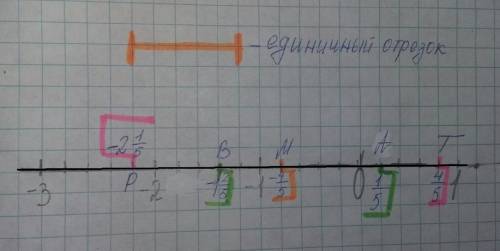 - единичный отрезок
-2 1/5 B M A T
-3 P -2 -1 -1/5 0 1/5 4/5 1